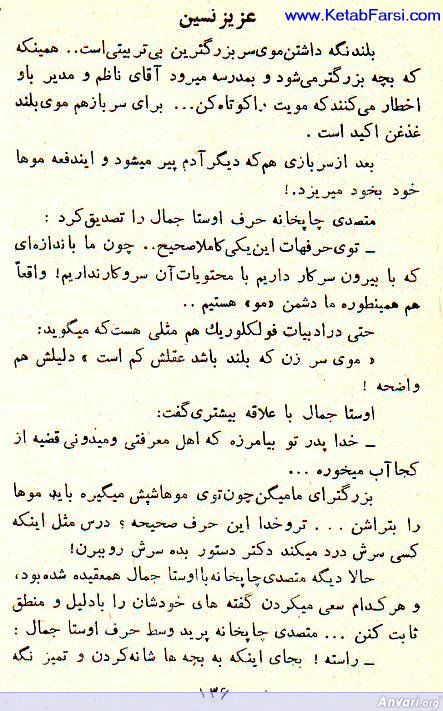 www.KetabFarsi.com
عزیز نسین
بلند نگه داشتن موی سر بزرگترین بی‌تربیتی است.. همینکه
که بچه بزرگتر می‌شود و بمدرسه میرود آقای ناظم و مدیر باو
اخطار می‌کنند که مویت را کوتاه کن... برای سرباز هم موی بلند
غذغن اکید است .
بعد از سربازی هم که دیگر آدم پیر میشود و ایندفعه موها
خود بخود میریزد.!
متصدی چاپخانه حرف اوستا جمال را تصدیق کرد :
ـ توی حرفهات این یکی کاملا صحیح.. چون ما باندازه‌ای
که با بیرون سر کار داریم با محتویات آن سر و کار نداریم! واقعاً
هم همینطوره ما دشمن «مو» هستیم ..
حتی در ادبیات فولکلوریك هم مثلی هست که میگوید:
« موی سر زن که بلند باشد عقلش کم است » دلیلش هم
واضحه !
اوستا جمال با علاقه بیشتری گفت:
ـ خدا پدر تو بیامرزه که اهل معرفتی و میدونی قضیه از
کجا آب میخوره ...
بزرگترای ما میگن چون توی موها شپش میگیره باید موها
را بتراشن . . . ترو خدا این حرف صحیحه ؟ درس مثل اینکه
کسی سرش درد میکند دکتر دستور بده سرش رو ببرن!
حالا دیگه متصدی چاپخانه با اوستا جمال همعقیده شده بود،
و هر کدام سعی میکردن گفته های خودشان را با دلیل و منطق
ثابت کنن ... متصدی چاپخانه پرید وسط حرف اوستا جمال :
ـ راسته ! بجای اینکه به بچه ها شانه کردن و تمیز نگه
۱۳۶
Anvari.org